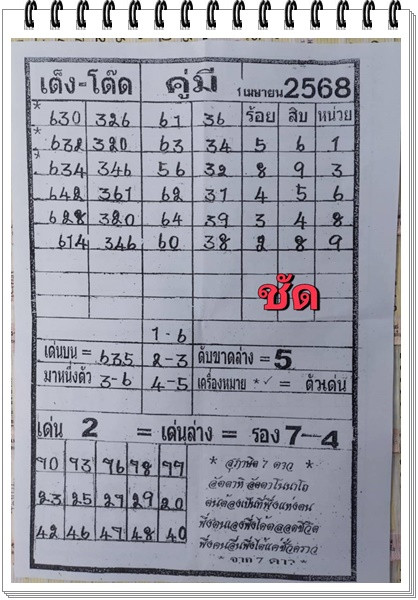 เด็ง-โต๊ด คู่มี 1 เมษายน 2568
ร้อย สิบ หน่วย
* 630 326 61 36
*632 320 63 34 5 6 1
634 346 56 32 8 9 3
642 361 62 31 4 5 6
628 320 64 39 3 4 8
614 346 60 38 2 8 9
ชัด
1-6
เด่นบน = 635 2-3 ดับขาดล่าง = 5
มาหนึ่งตัว 3-6 4-5 เครื่องหมาย *✓ = ตัวเด่น
เด่น 2 = เด่นล่าง = รอง 7-4
90 93 96 98 99
23 25 27 29 20
42 46 47 48 40
* สุภาษิต 7 ดาว *
อัตตาหิ อัตตาโนนาโถ
ตนต้องเป็นที่พึ่งแห่งตน
พึ่งตนเองพึ่งได้ตลอดชีวิต
พึ่งคนอื่นพึ่งได้แค่ชั่วคราว
* จาก 7 ดาว *